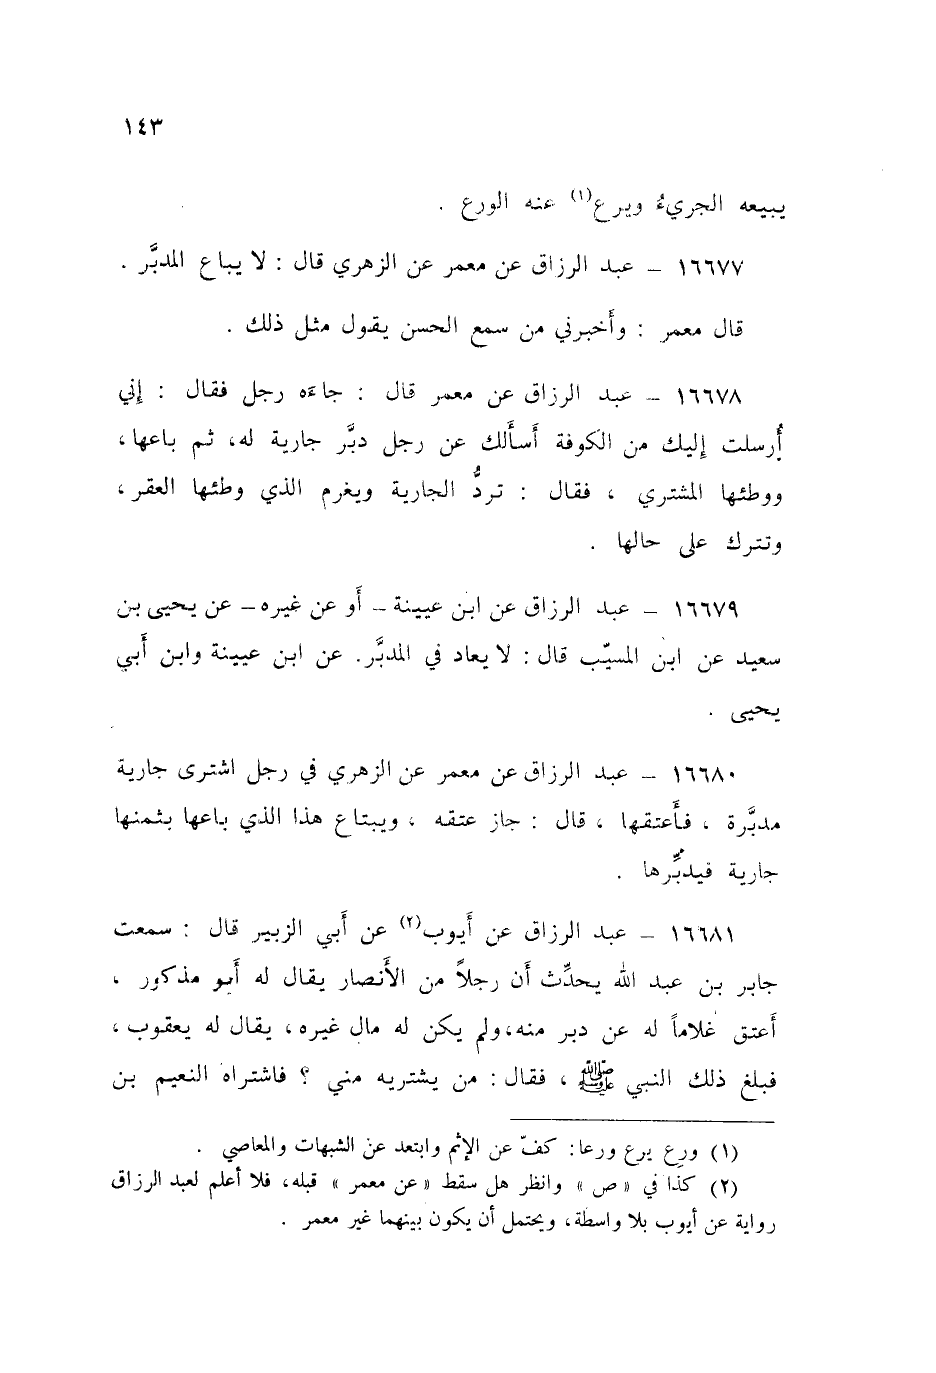 ١٤٣
يبيعه الجريءُ ويرع(١) عنه الورع .
١٦٦٧٧ – عبد الرزاق عن معمر عن الزهري قال : لا يباع المدبَّر .
قال معمر : وأَخبرني من سمع الحسن يقول مثل ذلك .
١٦٦٧٨ – عبد الرزاق عن معمر قال : جاءَه رجل فقال : إِني
أُرسلت إِليك من الكوفة أَسأَلك عن رجل دبَّر جارية له، ثم باعها،
ووطئها المشتري ، فقال : تردُّ الجارية ويغرم الذي وطئها العقر،
وتترك على حالها .
١٦٦٧٩ – عبد الرزاق عن ابن عيينة – أَو عن غيره – عن يحيى بن
سعيد عن ابن المسيّب قال : لا يعاد في المدبَّر. عن ابن عيينة وابن أَبي
يحيى .
١٦٦٨٠ – عبد الرزاق عن معمر عن الزهري في رجل اشترى جارية
مدبَّرة ، فأَعتقها ، قال : جاز عتقه ، ويبتاع هذا الذي باعها بثمنها
جارية فيدبِّرها .
١٦٦٨١ – عبد الرزاق عن أَيوب(٢) عن أَبي الزبير قال : سمعت
جابر بن عبد الله يحدِّث أَن رجلاً من الأَنصار يقال له أَبو مذكور ،
أَعتق غلاماً له عن دبر منه، ولم يكن له مال غيره، يقال له يعقوب،
فبلغ ذلك النبي ﷺ ، فقال : من يشتريه مني ؟ فاشتراه النعيم بن
(١) ورِع يرع ورعا: كفّ عن الإثم وابتعد عن الشبهات والمعاصي .
(٢) كذا في « ص » وانظر هل سقط «عن معمر » قبله، فلا أعلم لعبد الرزاق
رواية عن أيوب بلا واسطة، ويحتمل أن يكون بينهما غير معمر .